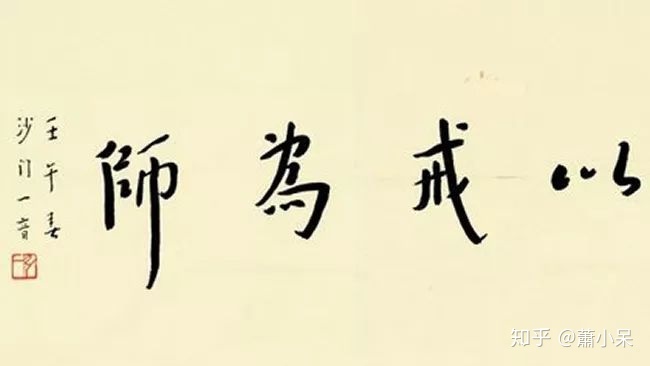 以戒為師
壬午春
沙门一音
知乎 @蕭小呆